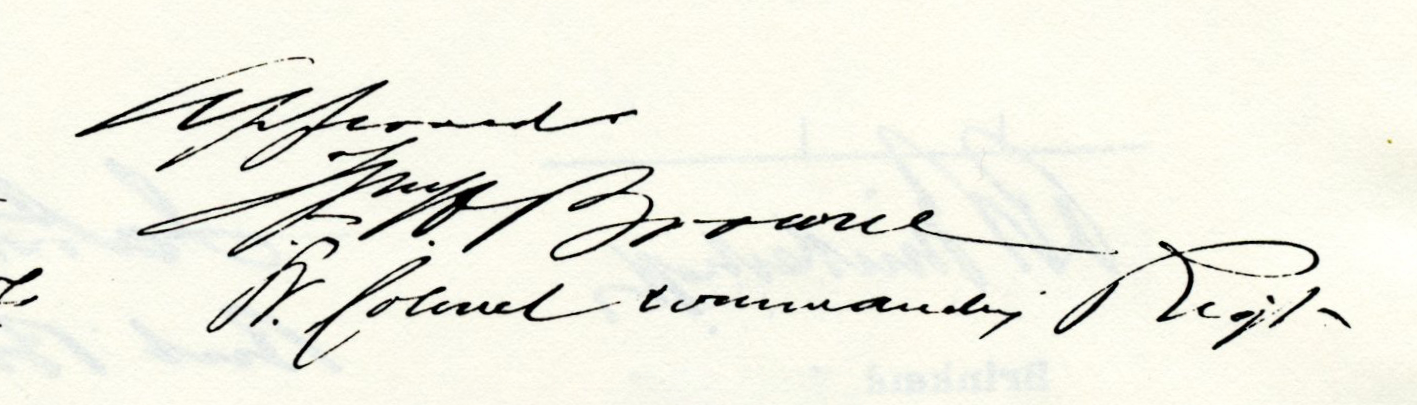 Approved
H. Browne
Lt. Colonel Commanding Regt.